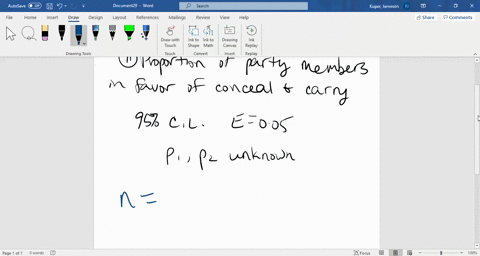 AutoSave Off Document29 - Word Search Kuper, Jameson
File Home Insert Draw Design Layout References Mailings Review View Help Share Comments
Draw with Touch Ink to Shape Ink to Math Drawing Canvas Ink Replay
Drawing Tools Convert Insert Replay
11) Proportion of party members
in favor of conceal & carry
95% C.L. E=0.05
P1, P2 unknown
n =
Page 1 of 1 0 words Focus 100%